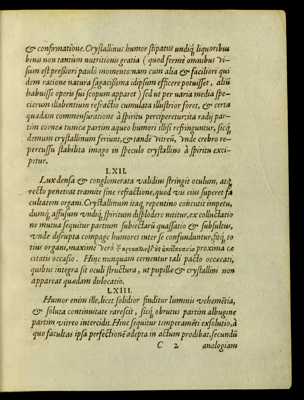 & confirmatione. Crystallinus humor stipatus undiq; liquoribus
binis non tantum nutritionis gratia (quod fermè omnibus vi-
sum est pressiori paulò momento) nam cum alia & faciliori qui
dem ratione natura sagacissima idipsum efficere potuisset, aliū
habuisse operis sui scopum apparet) sed ut per varia media spe-
cierum illabentium refractio cumulata illustrior foret, & certa
quadam commensuratione à spiritu perciperetur: ita radij par-
tim corneæ tunicæ partim aqueo humori illisi refringuntur, sicq́;
demum crystallinum feriunt, & tandē vitreū, unde crebro re-
percussu stabilita imago in speculo crystallino à spiritu exci-
pitur.
LXII.
Lux densa & conglomerata validius stringit oculum, atq́;
recto penetrat tramite sine refractione, quod vis eius superet fa
cultatem organi. Crystallinum itaq; repentino concutit impetu,
dumq́; affusum undiq; spiritum displodere nititur, ex colluctatio
ne mutua sequitur partium subiectarū quassatio & subsultus,
unde disrupta compage humores inter se confunduntur, fitq́; to
tius organi, maximè verò
proxima cæ
citatis occasio. Hinc nunquam cernentur tali pacto occæcati,
quibus integra sit oculi structura, ut pupillæ & crystallini non
appareat quædam dislocatio.
LXIII.
Humor enim ille, licet solidior finditur luminis vehemētia,
& soluta continuitate rarescit, sicq́; obrutus partim albugine
partim vitreo intercidit. Hinc sequitur temperamēti exsolutio, à
quo facultas ipsa perfectionē adepta in actum prodibat, secundū
C 2 analogiam